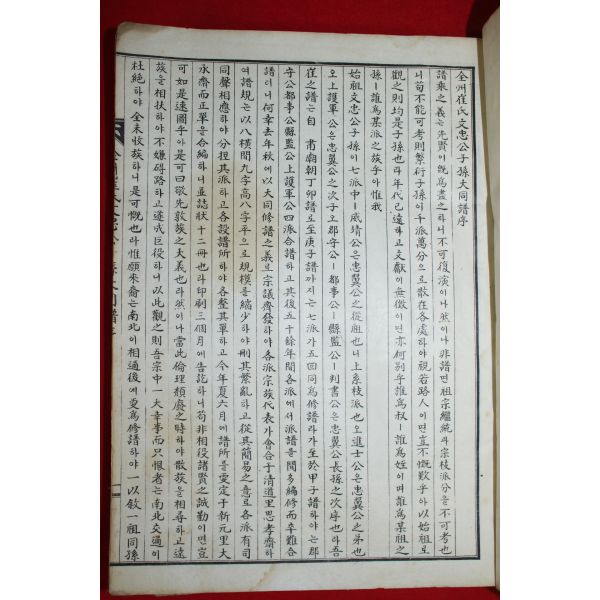 全州崔氏文忠公子孫大同譜序
譜乘之義는先賢이旣爲盡之하니不可復演이나然이나非譜면祖宗繼統과宗枝派分을不可考也
니苟不能可考則繁衍子孫이千派萬分으로散在各處하야視若路人이면豈不慨歎乎아以始祖로
觀之則均是子孫也라年代已遠하고文獻이無徵이면亦何別乎誰爲叔ㅣ誰爲姪이며誰爲某祖之
孫ㅣ誰爲某派之族乎아惟我
始祖文忠公子孫이七派中ㅣ威靖公은忠翼公之從祖也니上系枝派也오進士公은忠翼公之弟也
오上護軍公은忠翼公之次子오郡守公ㅣ都事公ㅣ縣監公ㅣ判書公은忠翼公長孫之次序也라吾
崔之譜는自 肅廟朝丁卯譜로至庚子譜까지는七派가五回同爲修譜라가至於甲子譜하야는郡
守公都事公縣監公上護軍公四派合譜하고其後五十餘年間各派에서派譜을間多編修而卒難合
譜러니何幸去年秋에以大同修譜之義로宗議齊發하야各派宗族代表가會合于清道里思孝齋하
여譜規는以八橫間九字高八字平으로規模을縮少하야刪其繁亂하고從其簡易之意로各派有司
同聲相應하야分担其派하고各設譜所하야各整其單하고今年夏六月에譜所을更定于新元里大
永齋而正單을合編하니並誌狀十二冊也라印刷三個月에告訖하니苟非相役諸賢之誠勤이면豈
可如是速圖乎아是可曰敬先敦族之大義也라然이나當此倫理頹廢之時하야散族을相尋하고遠
族을相扶하야不嫌碍路하고遂成巨役하니以此觀之則吾宗中一大幸事而只恨者는南北交通이
杜絶하야全未收族하니是可慨也라惟願來裔는南北이相通後에更爲修譜하야一以敘一祖同孫